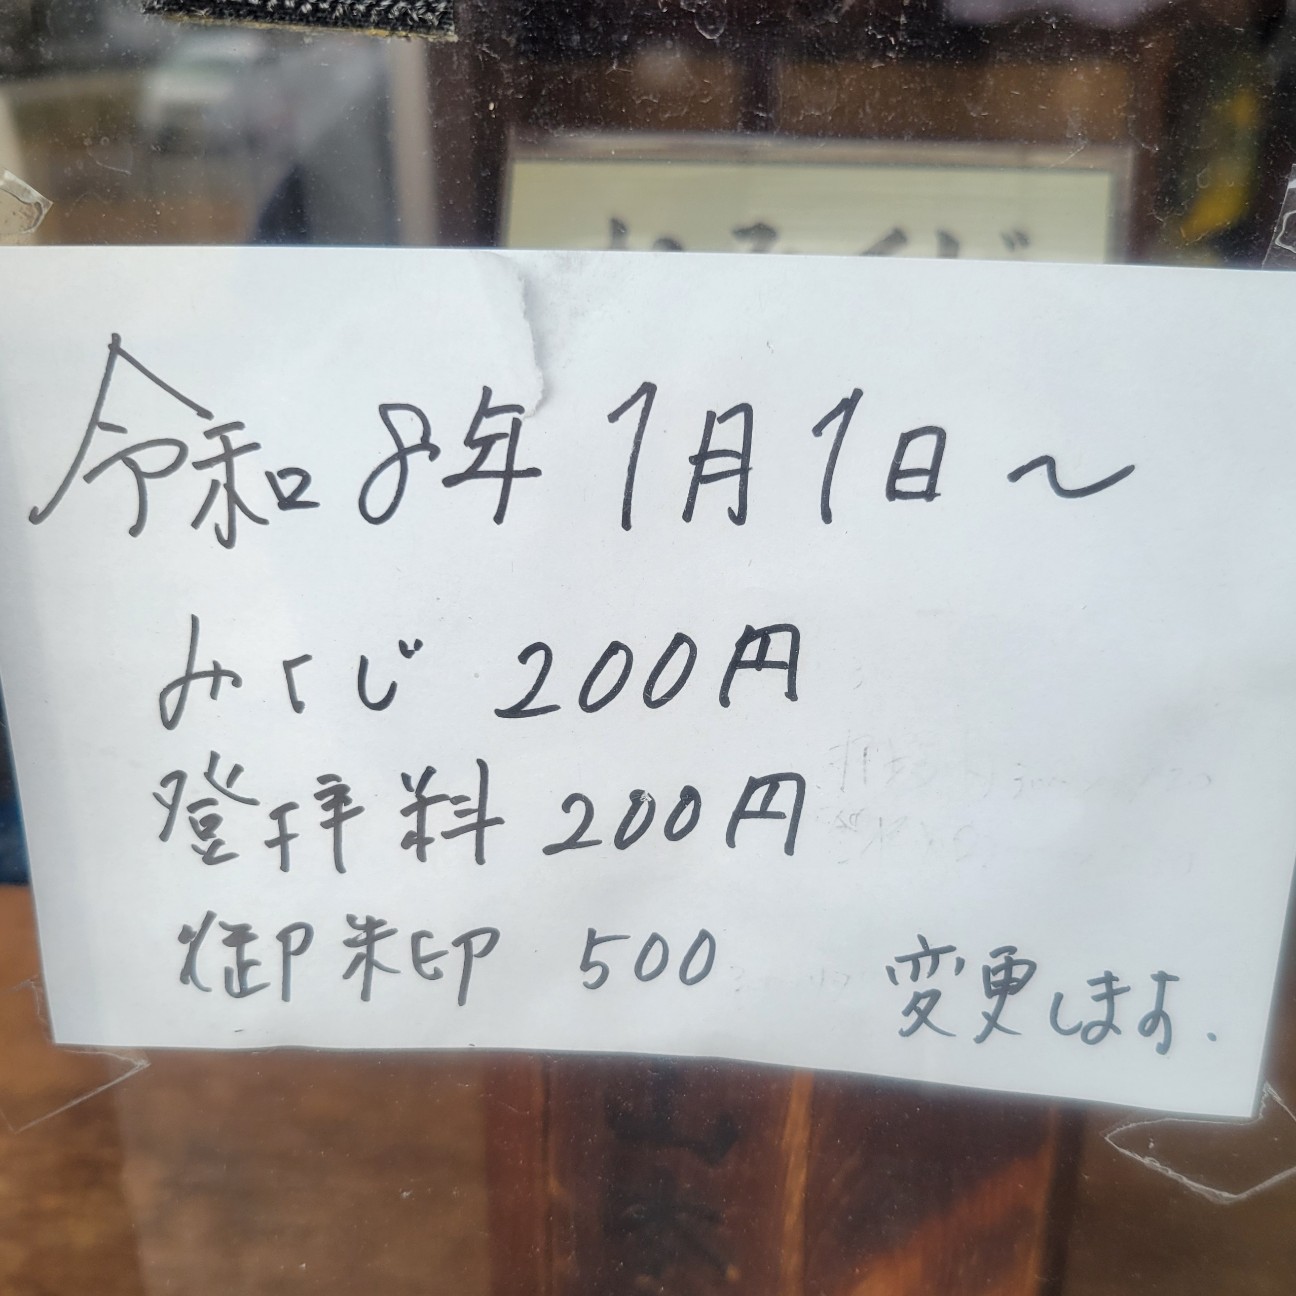 令和8年1月1日～
みくじ 200円
登拝料 200円
御朱印 500
変更します.